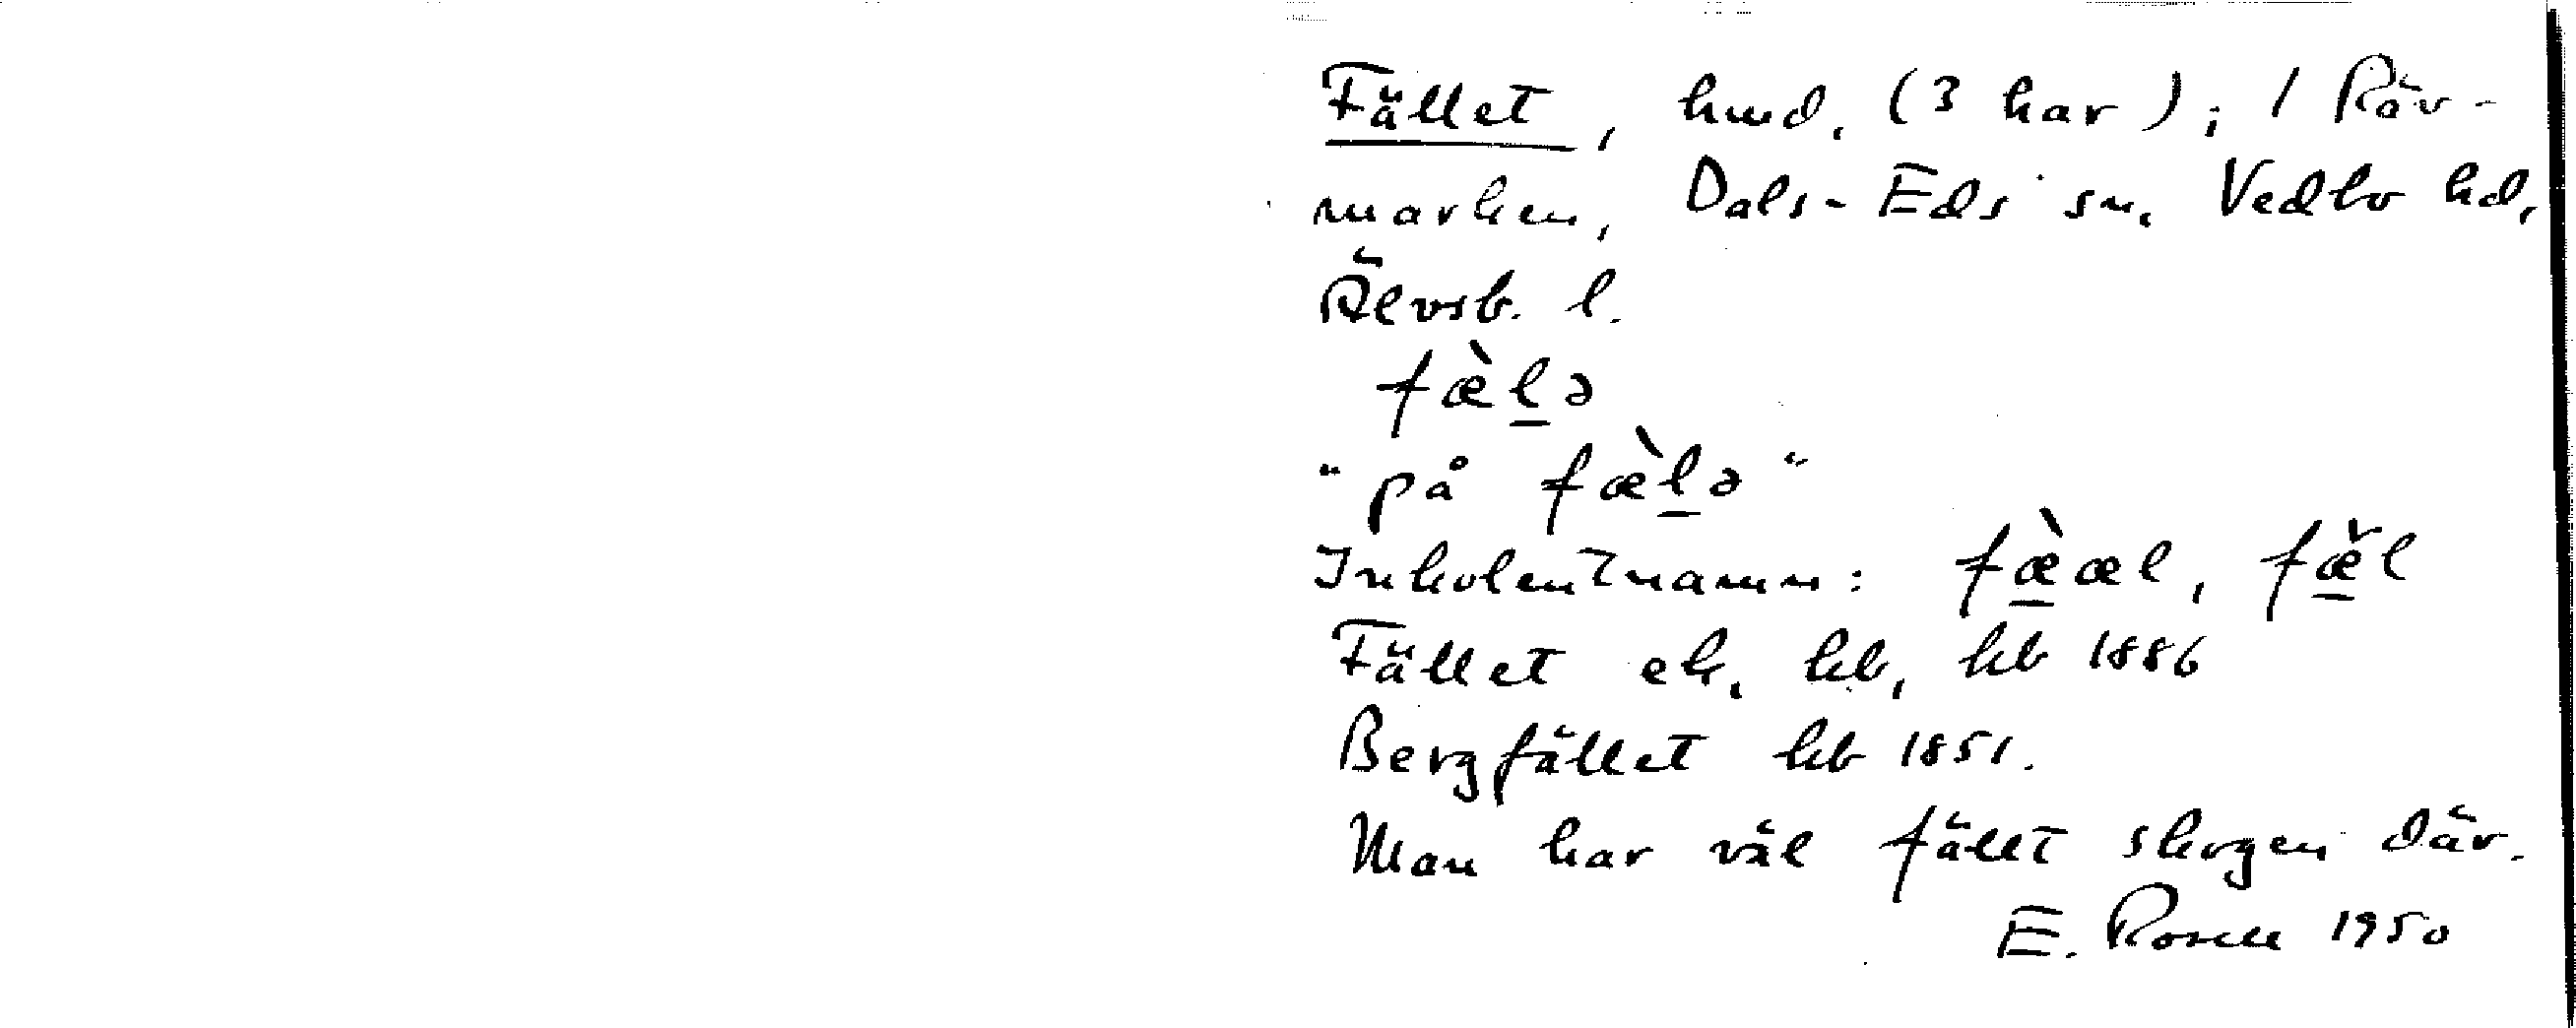 Fället, hmd. (3 har); 1 Räv-
marken, Dals-Eds sn. Vedbo hd,
Älvsb. l.
fæ̀l̲ə
"på fæ̀l̲ə"
Inkolentnamn: fæ̲̀æl, fæ̲̌l
Fället ek. kb, kb 1886
Bergfället kb 1851.
Man har väl fällt skogen där.
E. Rosell 1950